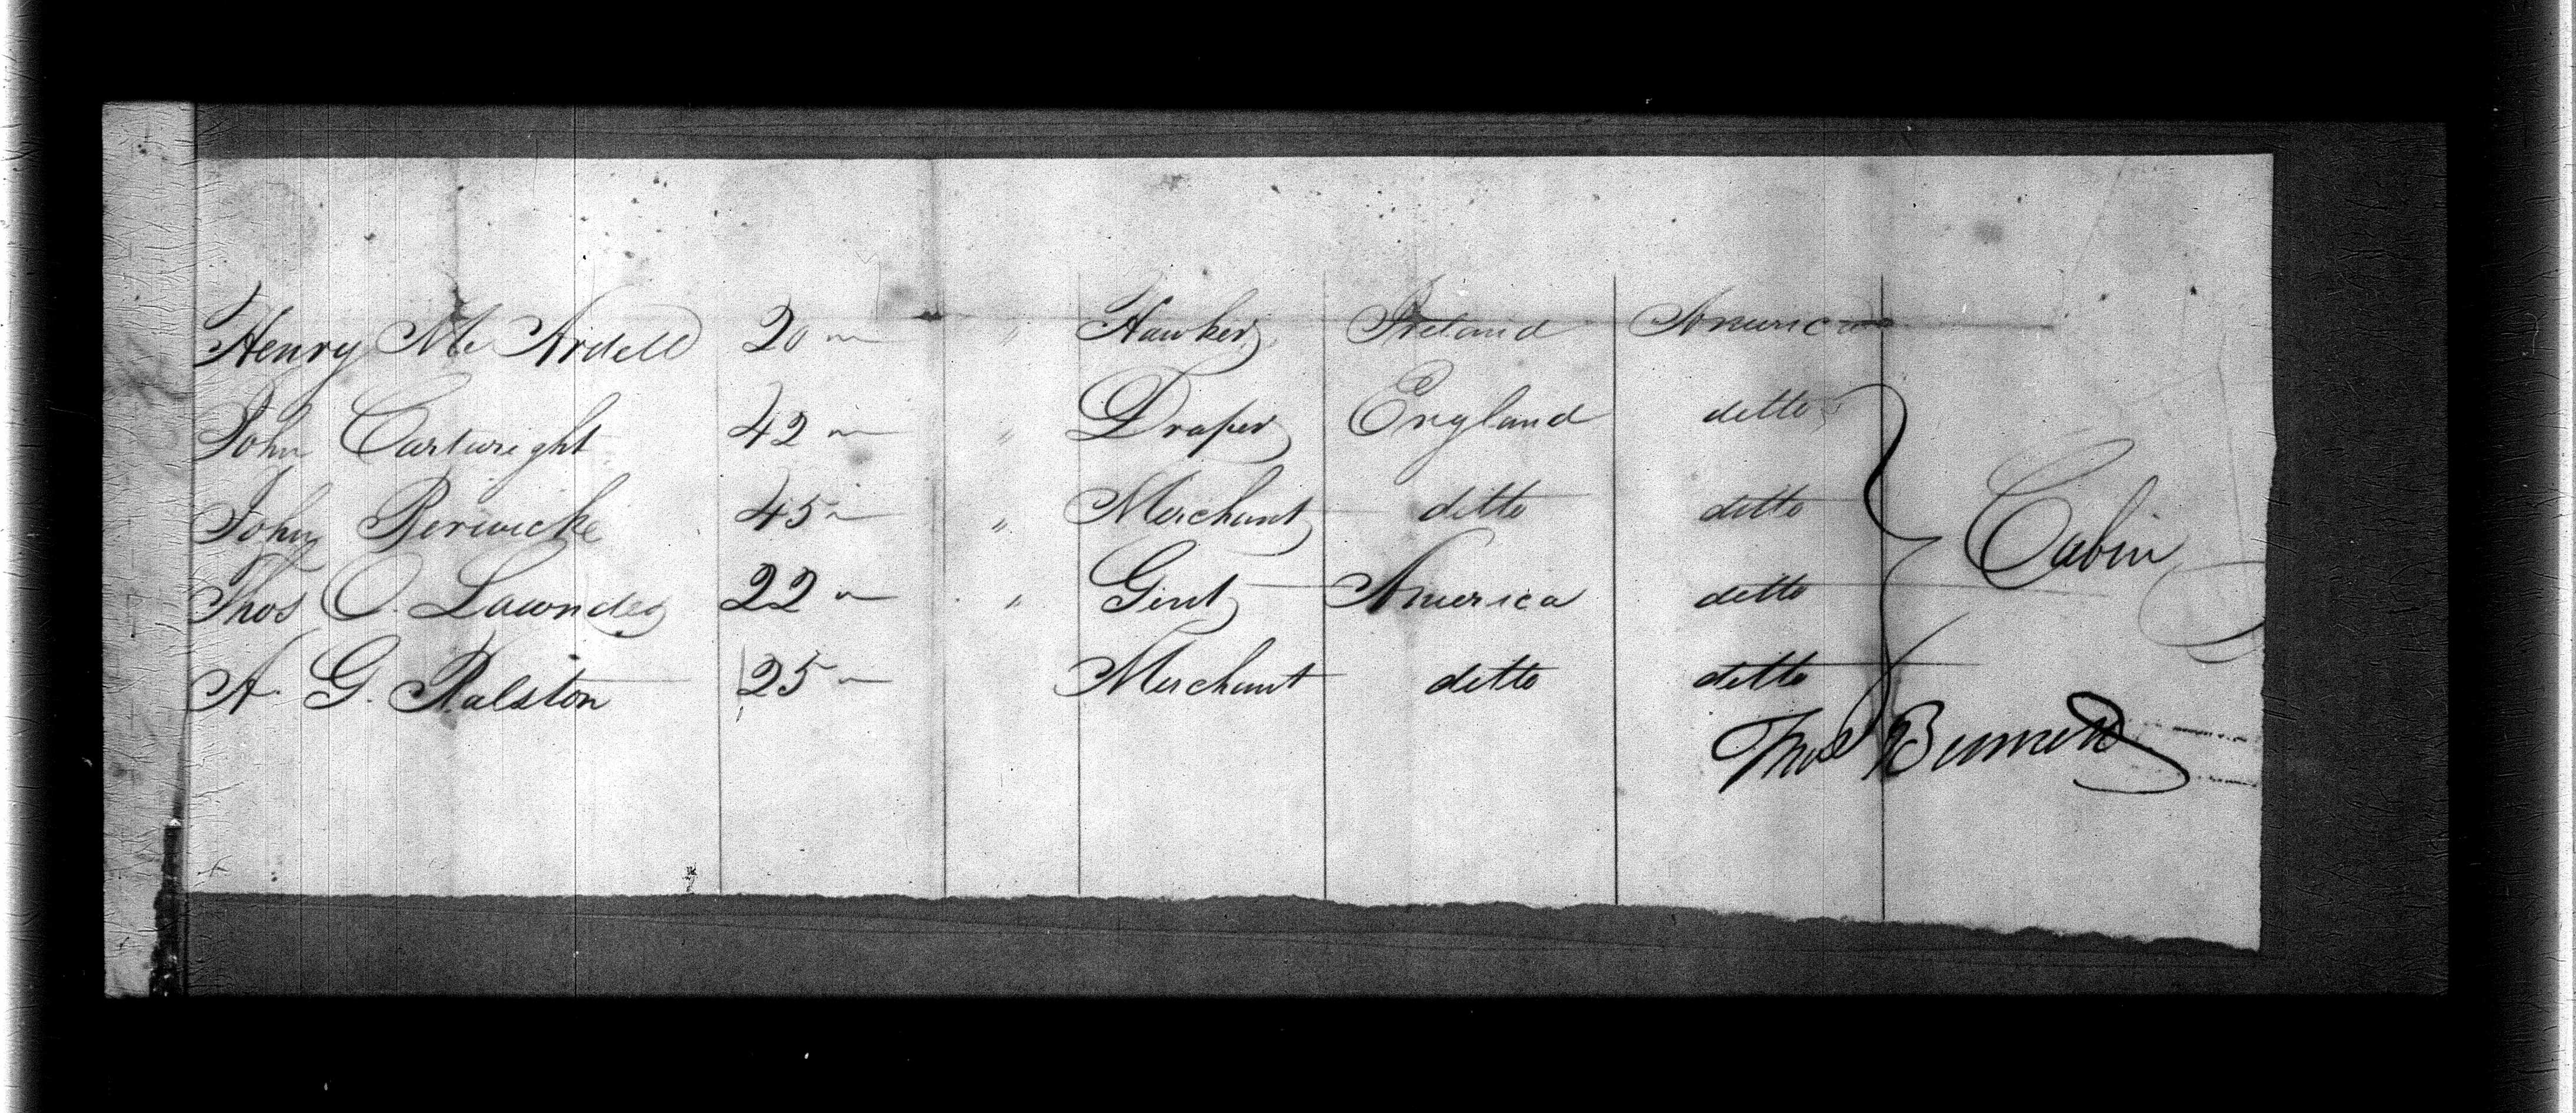 Henry Mc Ardell 20 " Hawker Ireland America
John Cartwright 42 " Draper England ditto
John Berwicke 45 " Merchant ditto ditto
Thos O. Lawndes 22 " Gent America ditto
A. G. Ralston 25 Merchant ditto ditto
Cabin
Thos Bennett